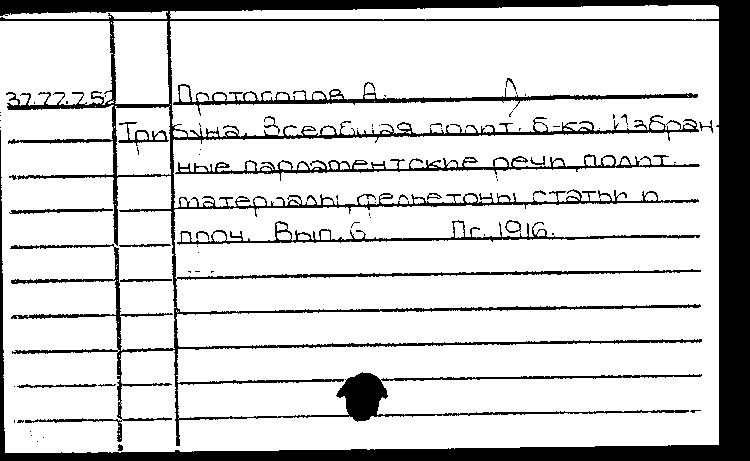 37.77.7.52 Протопопов А. Д
Трибуна. Всеобщая полит. б-ка. Избран-
ные парламентские речи, полит.
материалы, фельетоны, статьи и
проч. Вып. 6 Пг., 1916.